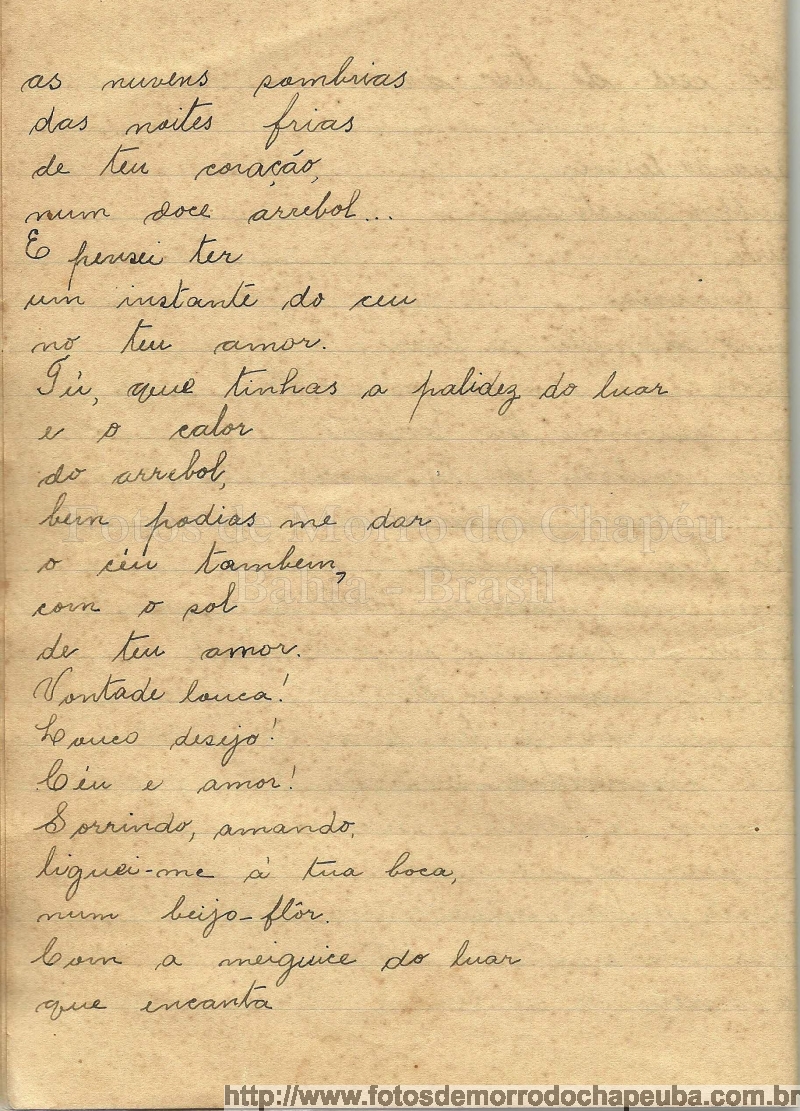 as nuvens sombrias
das noites frias
de teu coração,
num doce arrebol...
E pensei ter
um instante do ceu
no teu amor.
Tú, que tinhas a palidez do luar
e o calor
do arrebol,
bem podias me dar
o céu tambem,
com o sol
de teu amor.
Vontade louca!
Louco desejo!
Céu e amor!
Sorrindo, amando,
liguei-me à tua boca,
num beijo-flôr.
Com a meiguice do luar
que encanta
Fotos de Morro do Chapéu
Bahia - Brasil
http://www.fotosdemorrodochapeuba.com.br